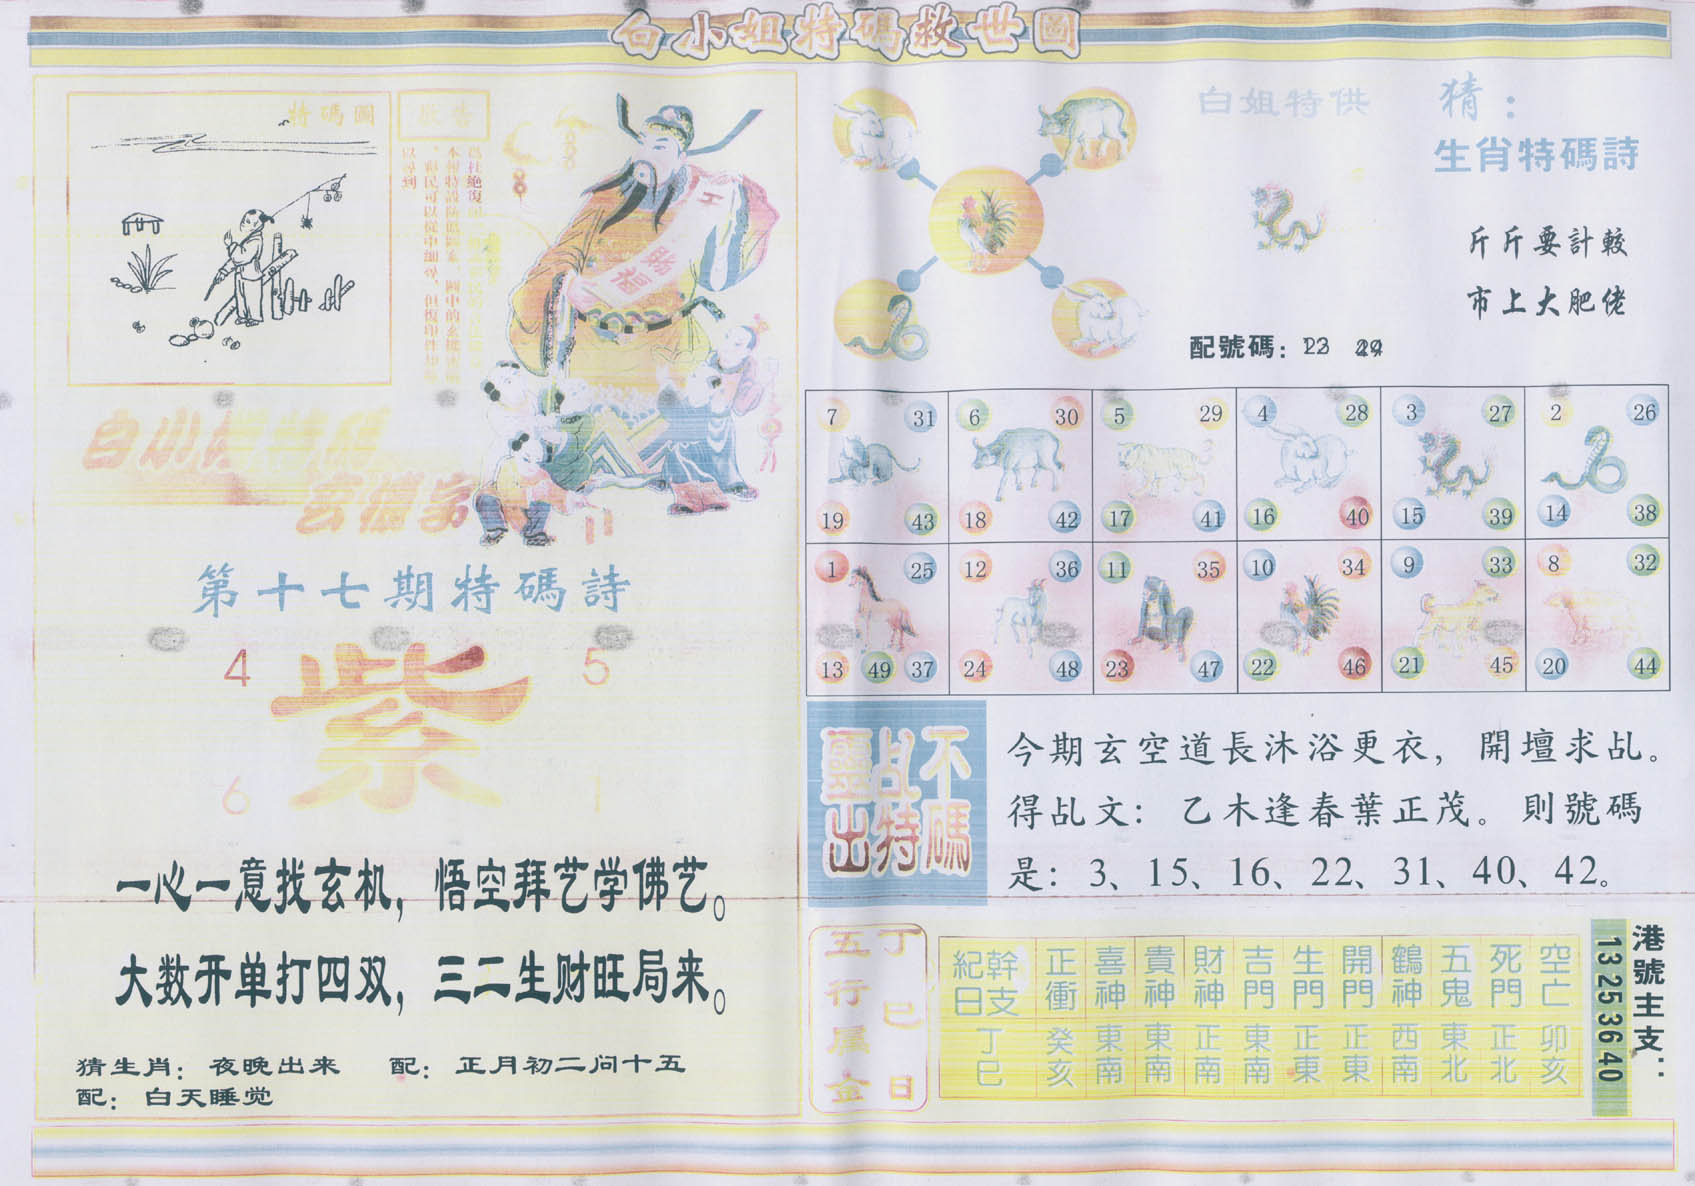 白小姐特碼救世圖
特碼圖
敬告
賜福
白小姐特碼
玄機字
第十七期特碼詩
4 5
紫
6 1
一心一意找玄机，悟空拜艺学佛艺。
大数开单打四双，三二生财旺局来。
猜生肖：夜晚出来 配：正月初二问十五
配：白天睡觉
白姐特供
配號碼：
猜：
生肖特碼詩
斤斤要計較
市上大肥佬
7 31 6 30 5 29 4 28 3 27 2 26
19 43 18 42 17 41 16 40 15 39 14 38
1 25 12 36 11 35 10 34 9 33 8 32
13 49 37 24 48 23 47 22 46 21 45 20 44
不碼
乩特
靈出
今期玄空道長沐浴更衣，開壇求乩。
得乩文：乙木逢春葉正茂。則號碼
是：3、15、16、22、31、40、42。
丁巳日
五行屬金
幹支紀日 正衝 喜神 貴神 財神 吉門 生門 開門 鶴神 五鬼 死門 空亡
丁巳 癸亥 東南 東南 正南 東南 正東 正東 西南 東北 正北 卯亥
港號主支：
13 25 36 40